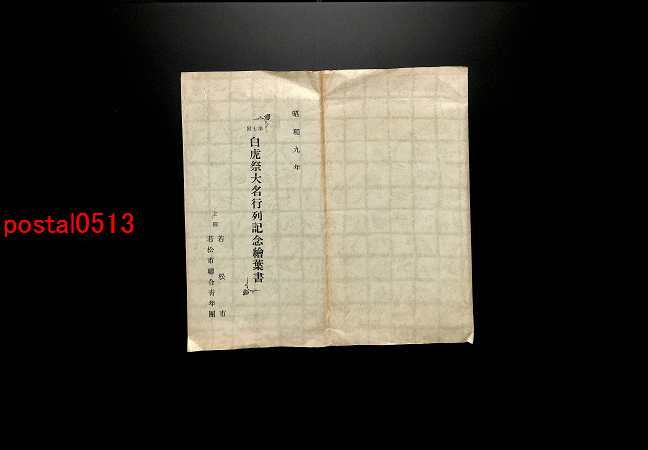 昭和九年
第七回
白虎祭大名行列記念繪葉書
主催
若松市
若松市聯合青年團
postal0513